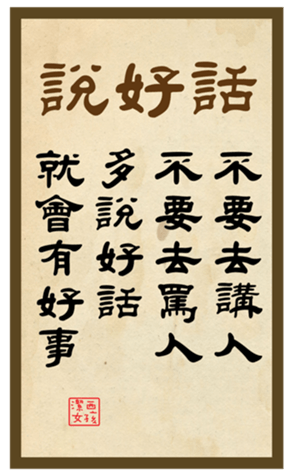 說好話
不要去講人
不要去罵人
多說好話
就會有好事